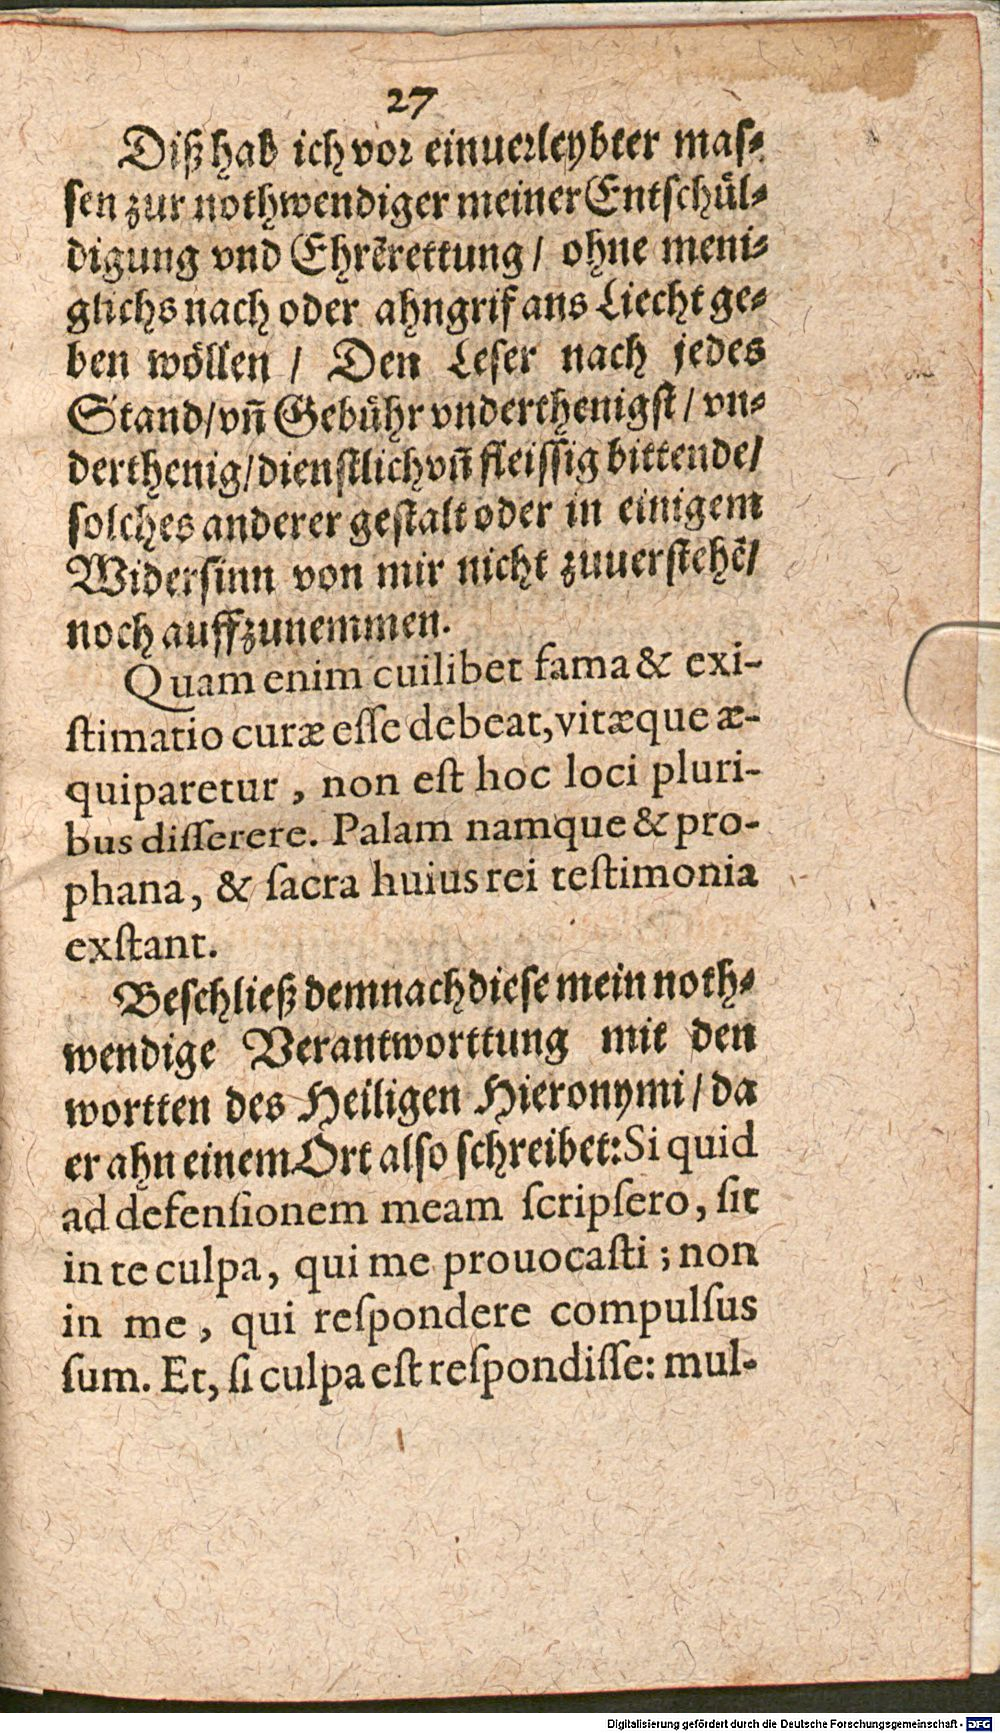 27
Diß hab ich vor einuerleybter mas-
sen zur nothwendiger meiner Entschül-
digung vnd Ehrẽrettung / ohne meni-
glichs nach oder ahngrif ans Liecht ge-
ben wöllen / Den Leser nach jedes
Stand/vñ Gebühr vnderthenigst / vn-
derthenig/dienstlich vñ fleissig bittende/
solches anderer gestalt oder in einigem
Widersinn von mir nicht zuuerstehẽ/
noch auffzunemmen.
Quam enim cuilibet fama & exi-
stimatio curæ esse debeat, vitæque æ-
quiparetur , non est hoc loci pluri-
bus disserere. Palam namque & pro-
phana, & sacra huius rei testimonia
exstant.
Beschließ demnach diese mein noth-
wendige Verantworttung mit den
wortten des Heiligen Hieronymi / da
er ahn einem Ort also schreibet: Si quid
ad defensionem meam scripsero, sit
in te culpa, qui me prouocasti ; non
in me , qui respondere compulsus
sum. Et, si culpa est respondisse: mul-
Digitalisierung gefördert durch die Deutsche Forschungsgemeinschaft - DFG